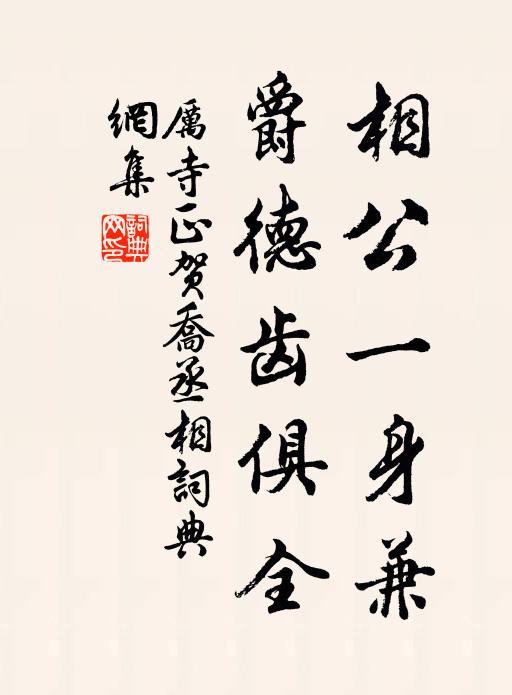 相公一身兼
爵德齿俱全
厲寺正賀喬丞相詞典
網集
詞典
网印